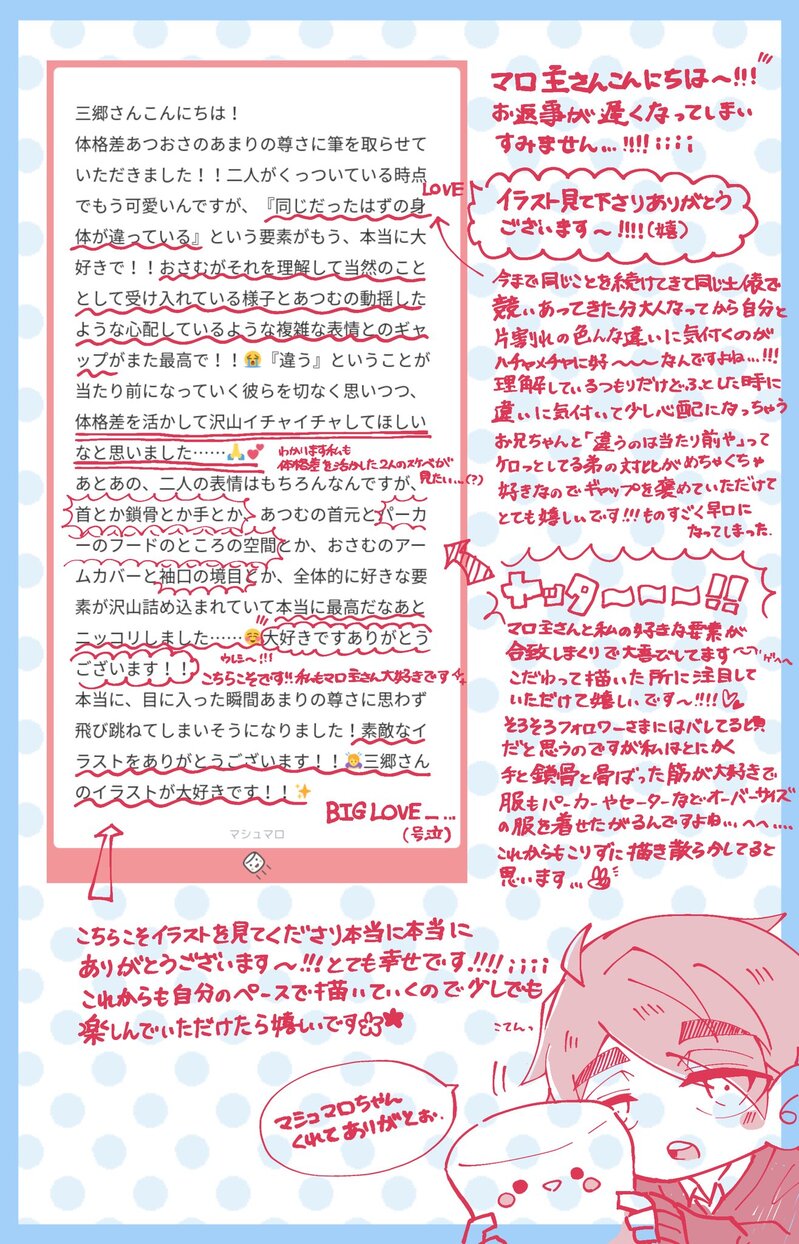 三郷さんこんにちは！
体格差あつおさのあまりの尊さに筆を取らせて
いただきました！！二人がくっついている時点
でもう可愛いんですが、『同じだったはずの身
体が違っている』という要素がもう、本当に大
好きで！！おさむがそれを理解して当然のこと
として受け入れている様子とあつむの動揺した
ような心配しているような複雑な表情とのギャ
ップがまた最高で！！😭『違う』ということが
当たり前になっていく彼らを切なく思いつつ、
体格差を活かして沢山イチャイチャしてほしい
なと思いました……🙏💕
あとあの、二人の表情はもちろんなんですが、
首とか鎖骨とか手とか、あつむの首元とパーカ
ーのフードのところの空間とか、おさむのアー
ムカバーと袖口の境目とか、全体的に好きな要
素が沢山詰め込まれていて本当に最高だなあと
ニッコリしました……☺️大好きですありがとう
ございます！！
本当に、目に入った瞬間あまりの尊さに思わず
飛び跳ねてしまいそうになりました！素敵なイ
ラストをありがとうございます！！🙇‍♀️三郷さん
のイラストが大好きです！！✨
マシュマロ
LOVE
わかります私も
体格差を活かした2人のスケベが
見たい...(?)
ウレシ〜!!!
こちらこそです!!私もマロ主さん大好きです
BIG LOVE—...
(号泣)
マロ主さんこんにちは〜!!!
お返事が遅くなってしまい
すみません...!!!!¡¡¡¡
イラスト見て下さりありがとう
ございます〜!!!!(嬉)
今まで同じことを続けてきて同じ土俵で
競いあってきた分大人なってから自分と
片割れの色んな違いに気付くのが
ハチャメチャに好〜〜〜なんですよね...!!!
理解しているつもりだけどふとした時に
違いに気付いて少し心配になっちゃう
お兄ちゃんと「違うのは当たり前や」って
ケロっとしてる弟の対比がめちゃくちゃ
好きなのでギャップを褒めていただけて
とても嬉しいです!!!ものすごく早口に
なってしまった.
ヤッターーー!!
マロ主さんと私の好きな要素が
合致しまくりで大喜びしてます〜
ゲヘヘ
こだわって描いた所に注目して
いただけて嬉しいです〜!!!!♡
そろそろフォロワーさまにはバレてる頃
だと思うのですが私はとにかく
手と鎖骨と骨ばった筋が大好きで
服もパーカーやセーターなどオーバーサイズ
の服を着せたがるんですよね...へへ....
これからもこりずに描き散らかしてると
思います...
こちらこそイラストを見てくださり本当に本当に
ありがとうございます〜!!!とても幸せです!!!!¡¡¡¡
これからも自分のペースで描いていくので少しでも
楽しんでいただけたら嬉しいです✿★
こてんっ
マシュマロちゃん
くれてありがとお.